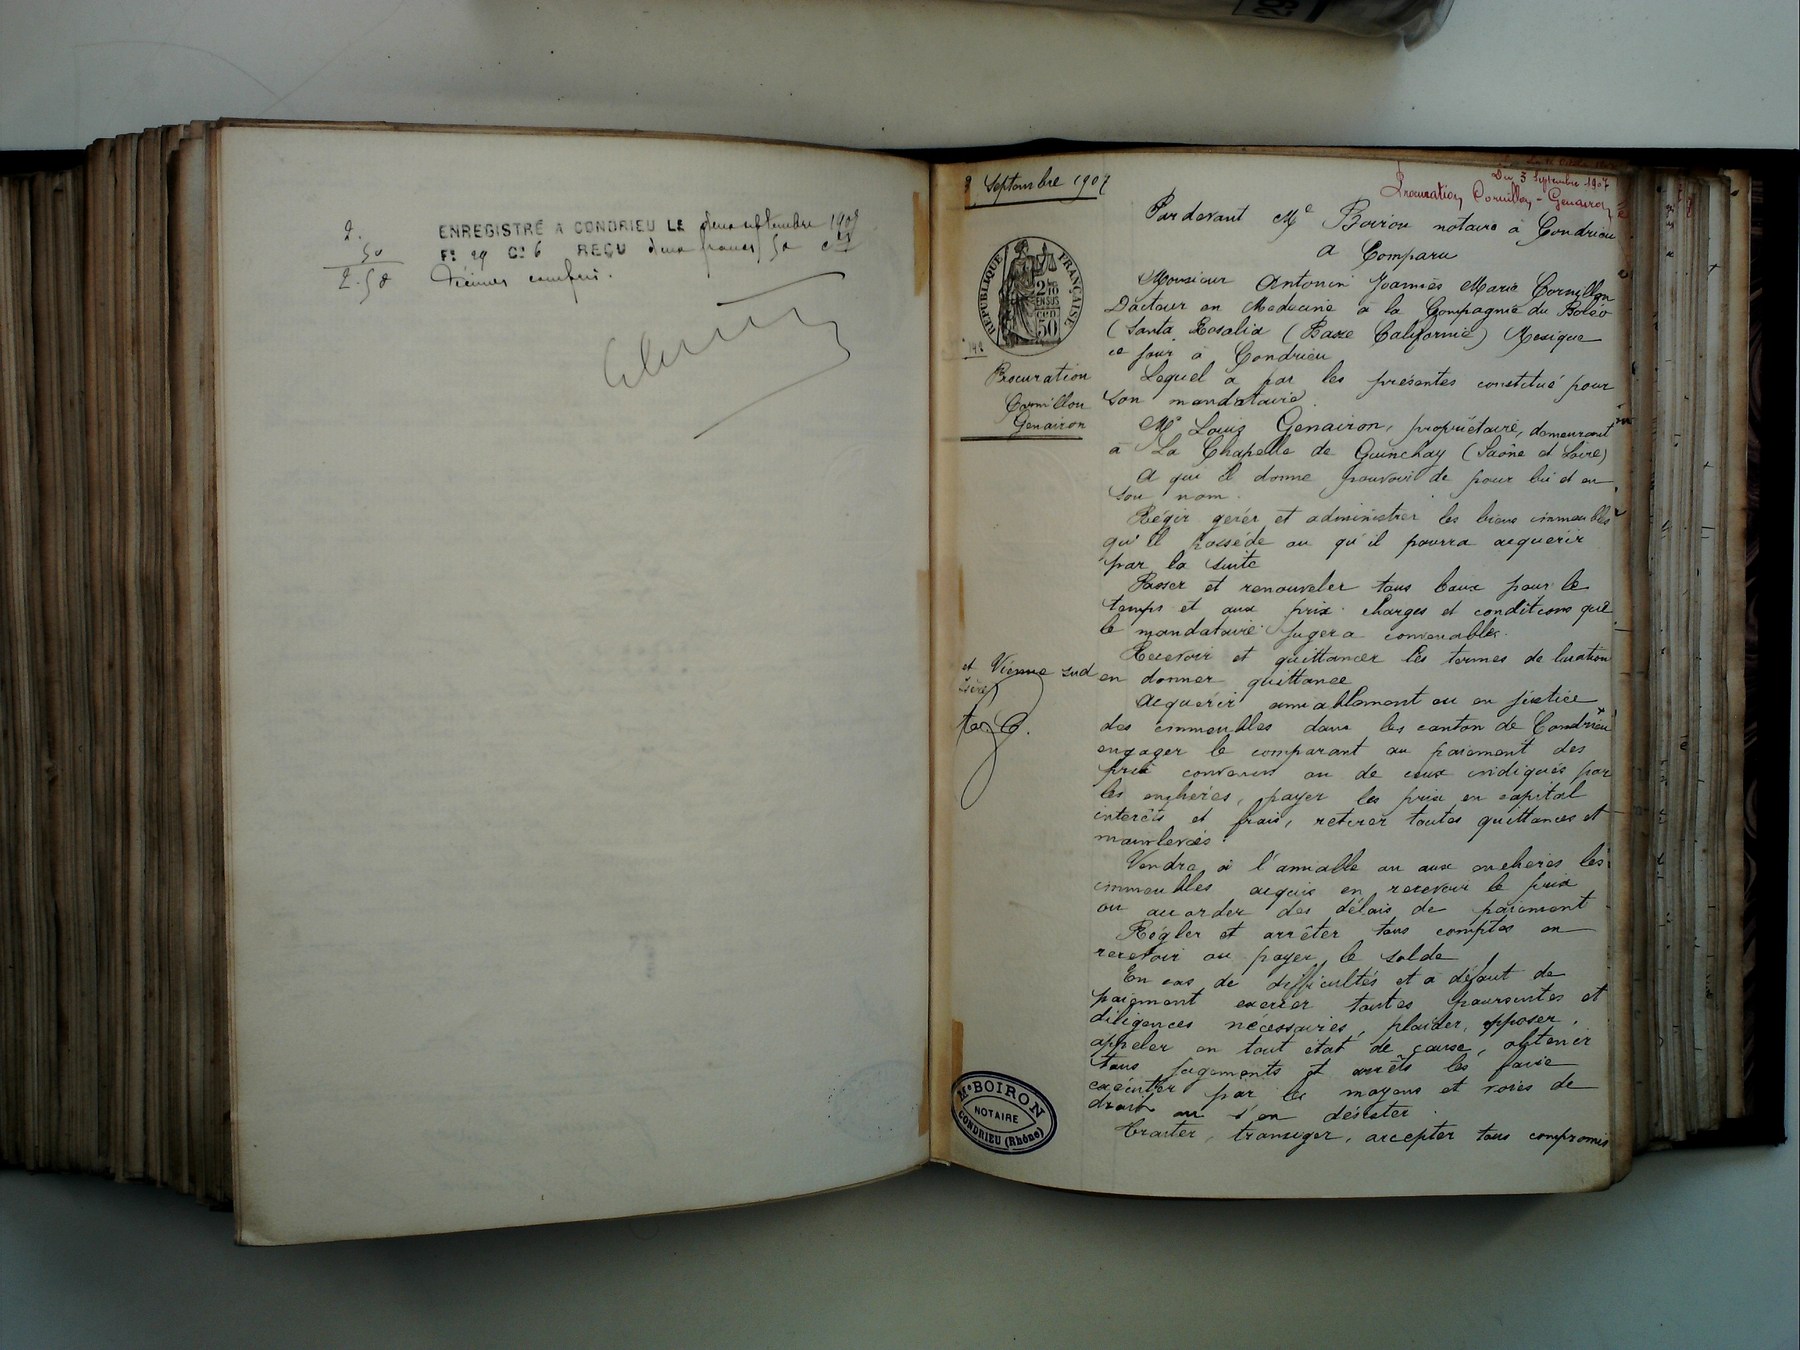 2.
50
2.50
ENREGISTRÉ A CONDRIEU LE deux septembre 1907
F° 29 C° 6 REÇU deux francs 50 cts
décimes compris.
3 Septembre 1907
Du 3 Septembre 1907
Procuration Cornillon - Genairon
Pardevant Me Boiron notaire à Condrieu
a Comparu
RÉPUBLIQUE FRANÇAISE
2/10
EN SUS
50
Procuration
Cornillon
Genairon
Monsieur Antonin Joannès Marie Cornillon
Docteur en Medecine à la Compagnie du Boléo
(Santa Rosalia (Basse Californie) Mexique
ce jour à Condrieu
Lequel a par les présentes constitué pour
son mandataire.
Mr Louis Genairon, propriétaire, demeurant
à La Chapelle de Guinchay (Saône et Loire)
A qui il donne pouvoir de pour lui et en
son nom.
Régir gerér et administrer les biens immeubles
qu'il possède ou qu'il pourra acquerir
par la suite
Passer et renouveler tous baux pour le
temps et aux prix charges et conditions que
le mandataire jugera convenables.
Recevoir et quittancer les termes de location
en donner quittance
Acquérir amiablement ou en justice
des immeubles dans les canton de Condrieu
et Vienne sud
engager le comparant au paiement des
prix convenus ou de ceux indiqués par
les enchères, payer les prix en capital
interêts et frais, retirer toutes quittances et
mainlevées.
Vendre à l'amiable ou aux encheres les
immeubles acquis en recevoir le prix
ou accorder des délais de paiement
Régler et arrêter tous comptes en
recevoir ou payer le solde
En cas de difficultés et a défaut de
paiement exercer toutes poursuites et
diligences nécessaires, plaider, opposer,
appeler en tout état de cause, obtenir
tous jugements et arrêts les faire
exécuter par les moyens et voies de
droit ou s'en désister.
Traiter, transiger, accepter tous compromis
Me BOIRON
NOTAIRE
CONDRIEU (Rhône)